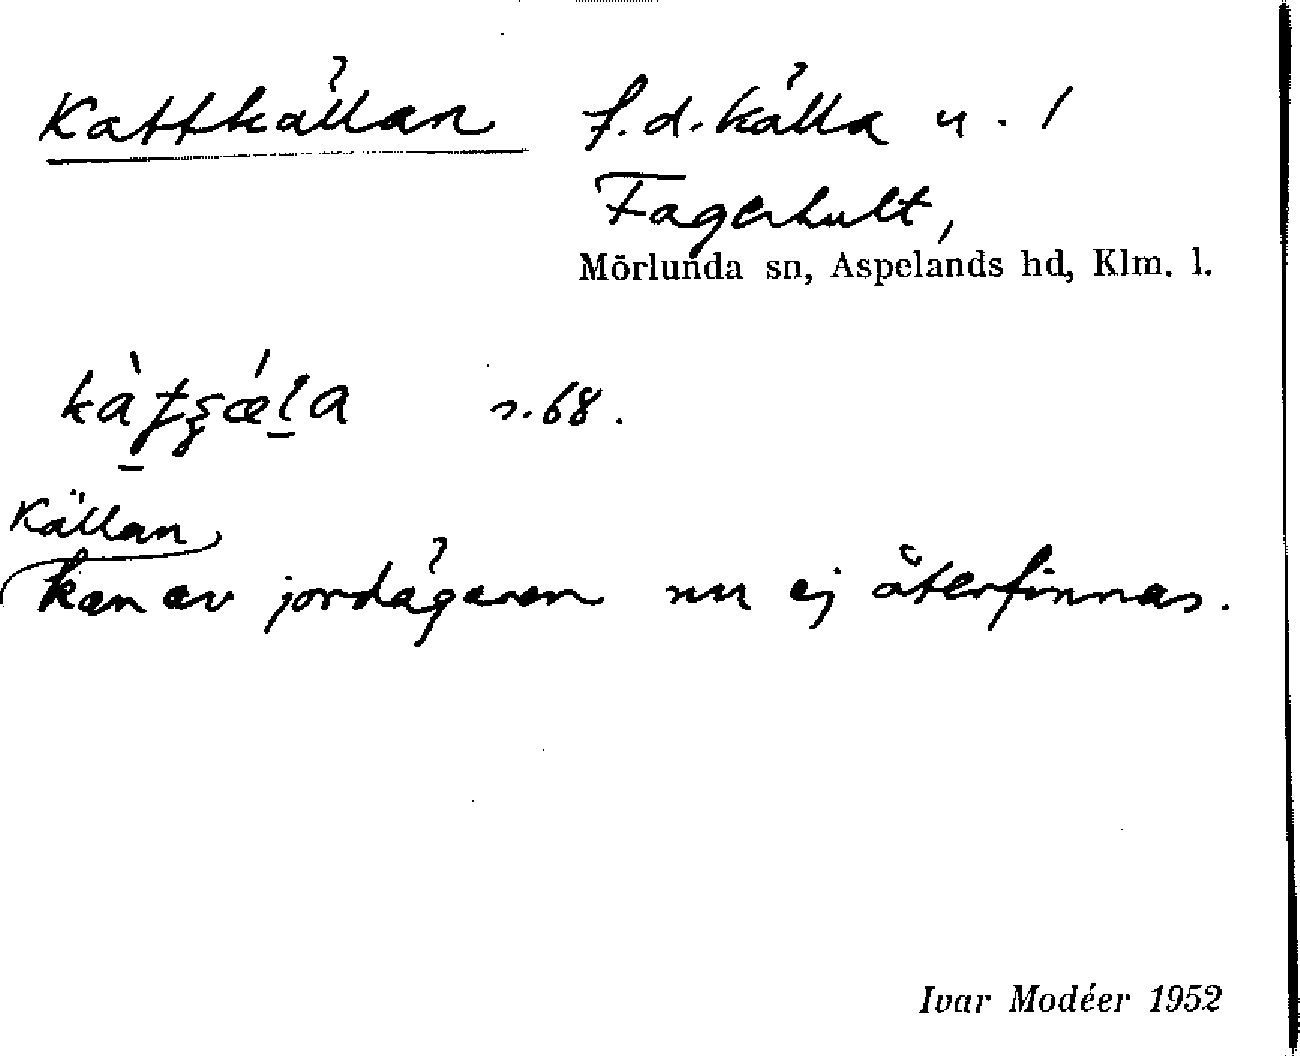 Kattkällan f.d. källa u. 1
Fagerhult,
Mörlunda sn, Aspelands hd, Klm. l.
s. 68.
Källan
kan av jordägaren nu ej återfinnas.
Ivar Modéer 1952